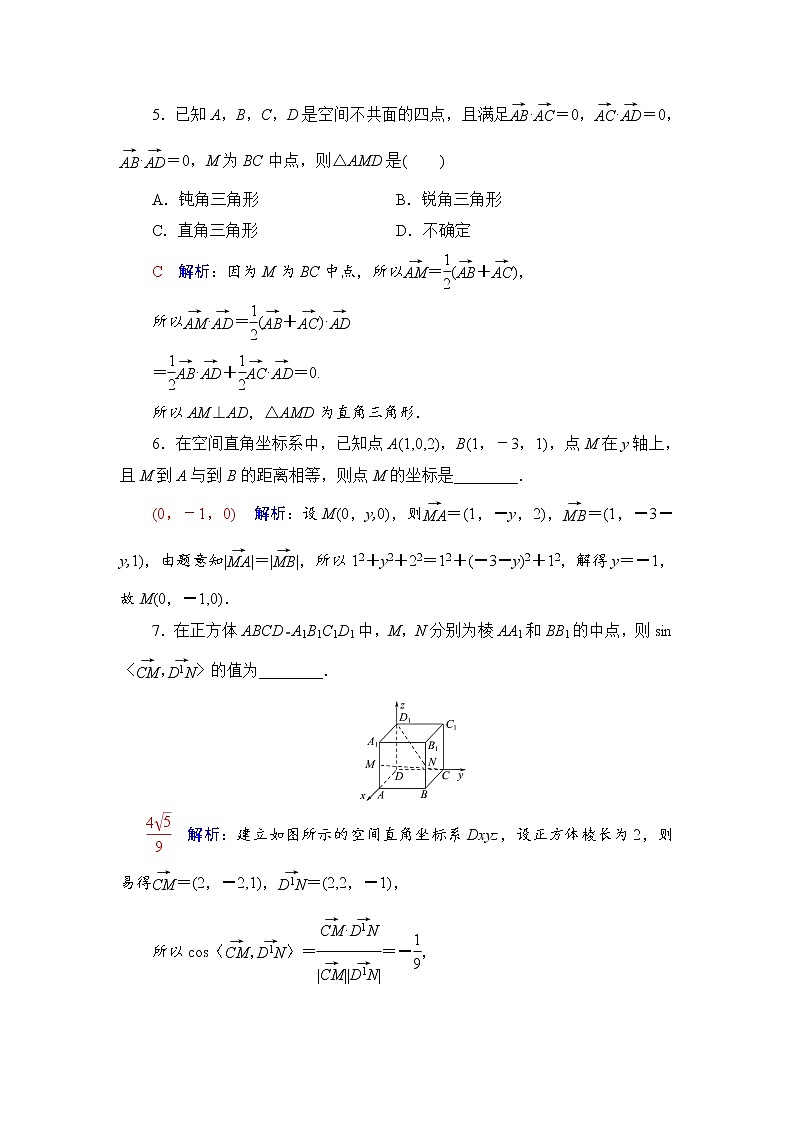 5．已知 A，B，C，D 是空间不共面的四点，且满足$\overrightarrow{AB}$·$\overrightarrow{AC}$=0，$\overrightarrow{AC}$·$\overrightarrow{AD}$=0，
$\overrightarrow{AB}$·$\overrightarrow{AD}$=0，M 为 BC 中点，则△AMD 是(　　)
A．钝角三角形　　B．锐角三角形
C．直角三角形　　D．不确定
C　解析：因为 M 为 BC 中点，所以$\overrightarrow{AM}$=$\frac{1}{2}$($\overrightarrow{AB}$+$\overrightarrow{AC}$)，
所以$\overrightarrow{AM}$·$\overrightarrow{AD}$=$\frac{1}{2}$($\overrightarrow{AB}$+$\overrightarrow{AC}$)·$\overrightarrow{AD}$
=$\frac{1}{2}\overrightarrow{AB}$·$\overrightarrow{AD}$+$\frac{1}{2}\overrightarrow{AC}$·$\overrightarrow{AD}$=0.
所以 AM⊥AD，△AMD 为直角三角形．
6．在空间直角坐标系中，已知点 A(1,0,2)，B(1，－3，1)，点 M 在 y 轴上，
且 M 到 A 与到 B 的距离相等，则点 M 的坐标是________．
(0，－1，0)　解析：设 M(0，y,0)，则$\overrightarrow{MA}$=(1，－y，2)，$\overrightarrow{MB}$=(1，－3－
y,1)，由题意知|$\overrightarrow{MA}$|=|$\overrightarrow{MB}$|，所以 1²+y²+2²=1²+(－3－y)²+1²，解得 y=－1，
故 M(0，－1,0)．
7．在正方体 ABCD-A₁B₁C₁D₁ 中，M，N 分别为棱 AA₁ 和 BB₁ 的中点，则 sin
〈$\overrightarrow{CM}$,$\overrightarrow{D1N}$〉的值为________．
z
D₁
C₁
A₁
B₁
M
N
D
C
y
x
A
B
$\frac{4\sqrt{5}}{9}$　解析：建立如图所示的空间直角坐标系 Dxyz，设正方体棱长为 2，则
易得$\overrightarrow{CM}$=(2，－2,1)，$\overrightarrow{D1N}$=(2,2，－1)，
所以 cos〈$\overrightarrow{CM}$,$\overrightarrow{D1N}$〉=$\frac{\overrightarrow{CM}·\overrightarrow{D1N}}{|\overrightarrow{CM}||\overrightarrow{D1N}|}$=－$\frac{1}{9}$，